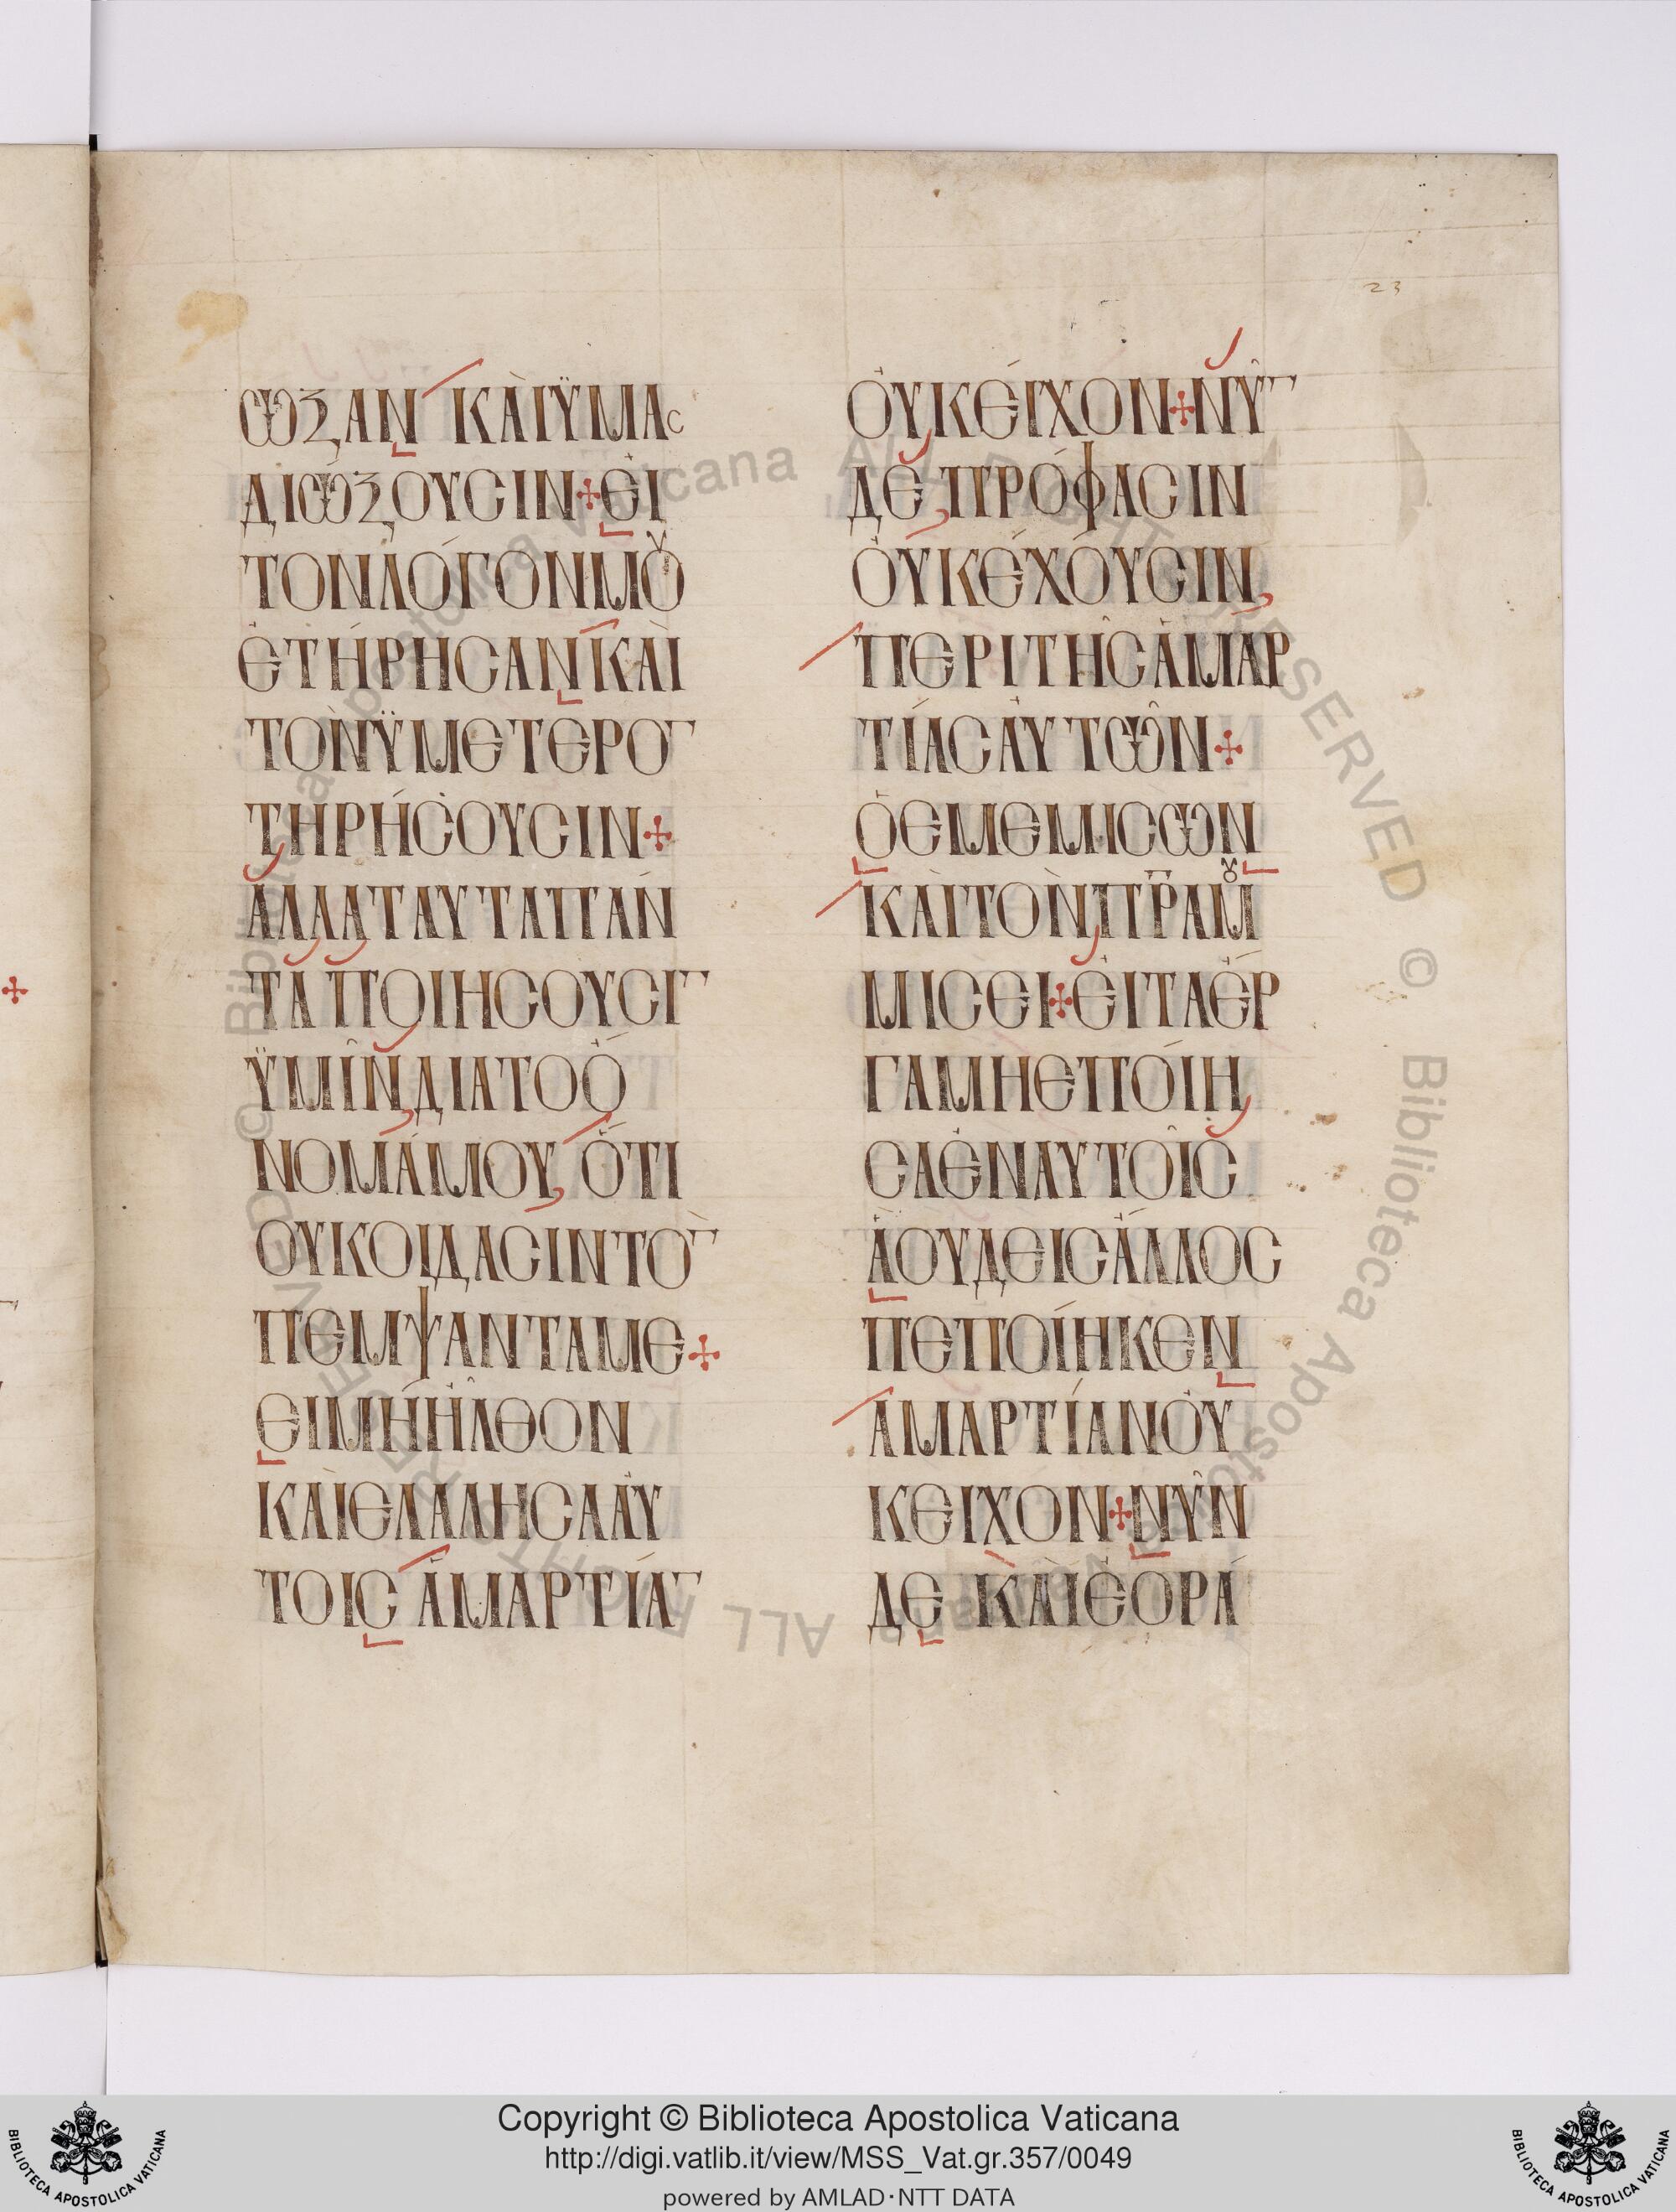 23
ΩΞΑΝ ΚΑῚΫΜΑC
ΔΙΩΞΟΥCΙΝ✣ἘΙ
ΤΟΝΛΌΓΟΝΜȢ
ἘΤΉΡΗCΑΝ ΚΑῚ
ΤΟῺΝΫΜΕΤΕΡΟ¯
ΤΗΡΉCΟΥCΙΝ✣
ΑΛΛΑΤΑΥΤΑΠΆΝ
ΤΑ ΠΟΙΗCΟΥCΙ¯
ΫΜῖΝΔΙΑΤΟὈ
ΝΟΜΆΜΟΥ, ὍΤΙ
ΟΥΚΟΙΔΑCΙΝΤΟ¯
ΠΕΜΨΑΝΤΑΜΕ✣
ΕΙΜΉἮΛΘΟΝ
ΚΑῚΕΛΑΛΗCΑΑΥ
ΤΟΙC ἉΜΑΡΤΊΑ¯
ΟΥ̓ΚΕΊΧΟΝ✣ΝΥ͂¯
ΔΕ ΠΡΌΦΑCΙΝ
ΟΥ̓ΚΈΧΟΥCΙΝ,
ΠΕΡΙΤΗ͂CἉΜΑΡ
ΤΊΑCΑΥ̓ΤΩ͂Ν✣
ὉΕΜΕΜΙCΩΝ
ΚΑῚΤΟΝΠ̅Ρ̅ΑΜȢ
ΜΙCΕΙ✣ἘΙΤΑΈΡ
ΓΑΜΗΕΠΌΙΗ
CΑἘΝΑΥΤΟΙ͂C
ἉΟΥΔΕΙCἌΛΛΟC
ΠΕΠΟΊΗΚΕΝ
ἉΜΑΡΤΊΑΝΟΥ̓
ΚΕΙΧΟΝ✣ΝΥ͂Ν
ΔΕ ΚΑῚἘΟΡΆ
© Biblioteca Apostolica Vaticana ALL RIGHTS RESERVED
Copyright © Biblioteca Apostolica Vaticana
http://digi.vatlib.it/view/MSS_Vat.gr.357/0049
powered by AMLAD·NTT DATA
BIBLIOTECA APOSTOLICA VATICANA
BIBLIOTECA APOSTOLICA VATICANA